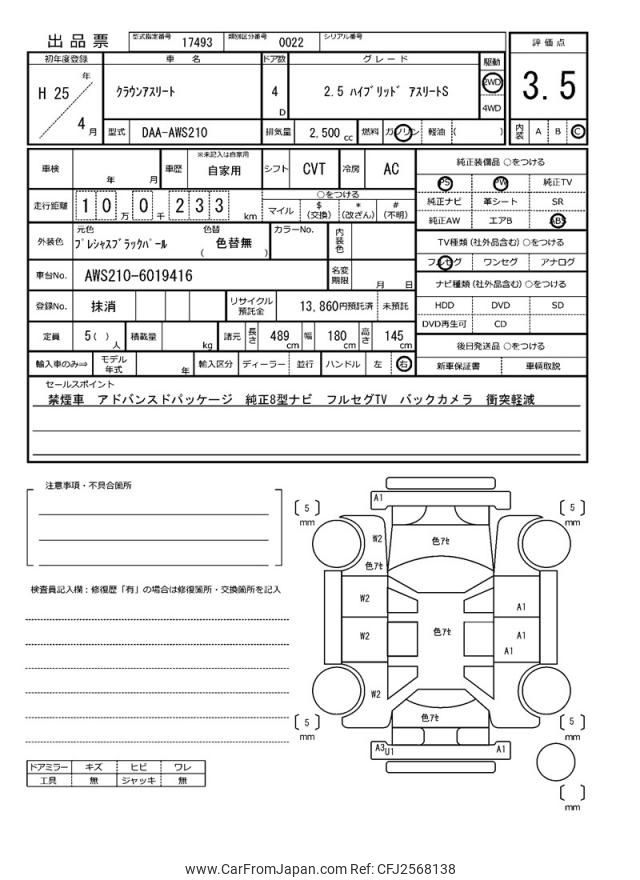 出品票 型式指定番号 17493 類別区分番号 0022 シリアル番号
評価点
初年度登録 車名 ドア数 グレード 駆動
H 25 年 4 月
クラウンアスリート 4 D 2.5 ハイブリッド アスリートS 2WD 4WD
3.5
型式 DAA-AWS210 排気量 2,500 cc 燃料 ガソリン 軽油 ( )
内装 A B C
車検 年 月 車歴 ※未記入は自家用 自家用 シフト CVT 冷房 AC
走行距離 10万0千233 km
○をつける
マイル $(交換) *(改ざん) #(不明)
外装色 元色 プレシャスブラックパール 色替 ( 色替無 ) カラーNo. 内装色
車台No. AWS210-6019416 名変期限 月 日
登録No. 抹消 リサイクル預託金 13,860円預託済 未預託
定員 5( )人 積載量 kg 諸元 長さ 489 cm 幅 180 cm 高さ 145 cm
輸入車のみ⇒ モデル年式 年 輸入区分 ディーラー 並行 ハンドル 左 右
純正装備品 ○をつける
PS PW 純正TV
純正ナビ 革シート SR
純正AW エアB ABS
TV種類(社外品含む)○をつける
フルセグ ワンセグ アナログ
ナビ種類(社外品含む)○をつける
HDD DVD SD
DVD再生可 CD
後日発送品 ○をつける
新車保証書 車輌取説
セールスポイント
禁煙車 アドバンスドパッケージ 純正8型ナビ フルセグTV バックカメラ 衝突軽減
注意事項・不具合箇所
検査員記入欄:修復歴「有」の場合は修復箇所・交換箇所を記入
A1
[ 5 ] mm
[ 5 ] mm
W2
色アセ
色アセ
W2
A1
W2
色アセ
A1
A1
W2
色アセ
[ 5 ] mm
[ 5 ] mm
A3
U1
A1
[ ] mm
ドアミラー キズ ヒビ ワレ
工具 無 ジャッキ 無
www.CarFromJapan.com Ref: CFJ2568138